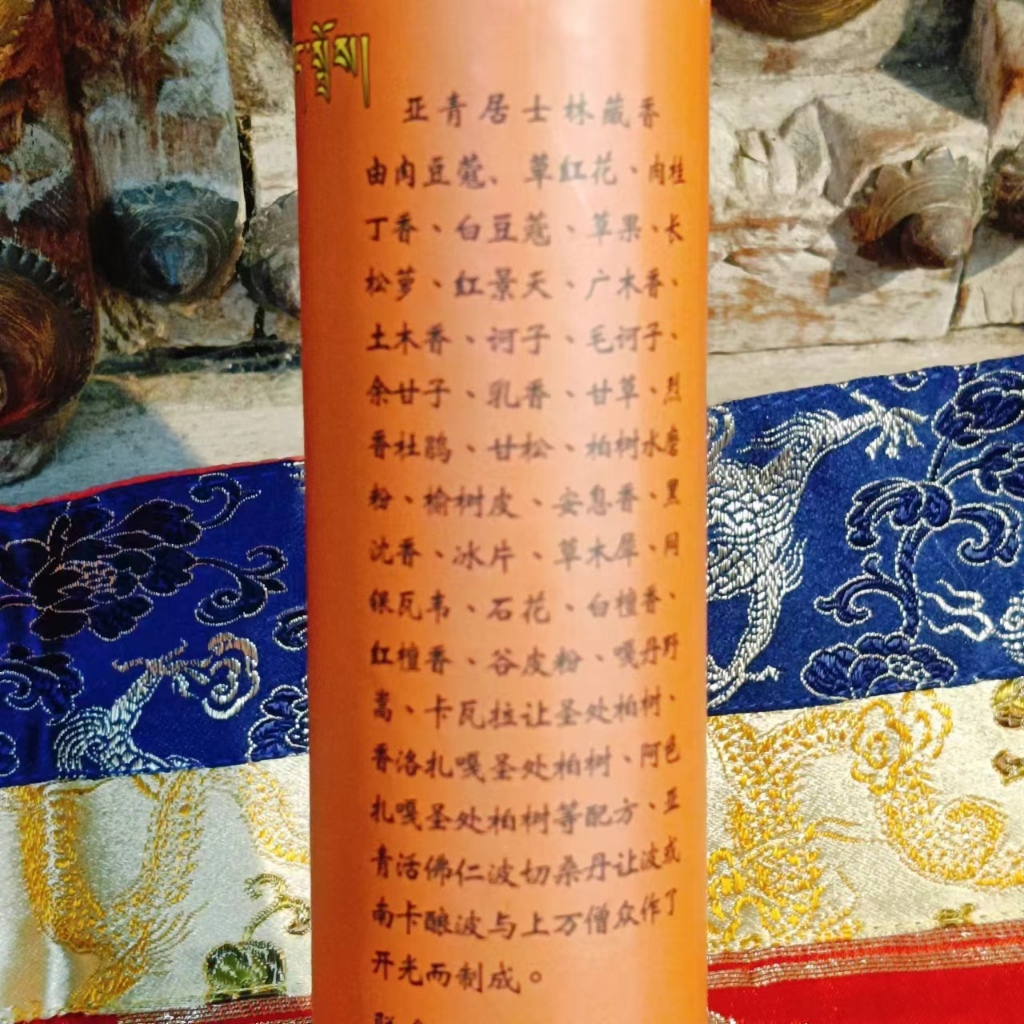 亚青居士林藏香
由肉豆蔻、草红花、肉桂
丁香、白豆蔻、草果、长
松萝、红景天、广木香、
土木香、诃子、毛诃子、
余甘子、乳香、甘草、烈
香杜鹃、甘松、柏树水磨
粉、榆树皮、安息香、黑
沈香、冰片、草木犀、网
银瓦韦、石花、白檀香、
红檀香、谷皮粉、嘎丹野
蒿、卡瓦拉让圣处柏树、
香洛扎嘎圣处柏树、阿色
扎嘎圣处柏树等配方、亚
青活佛仁波切桑丹让波或
南卡酿波与上万僧众作了
开光而制成。